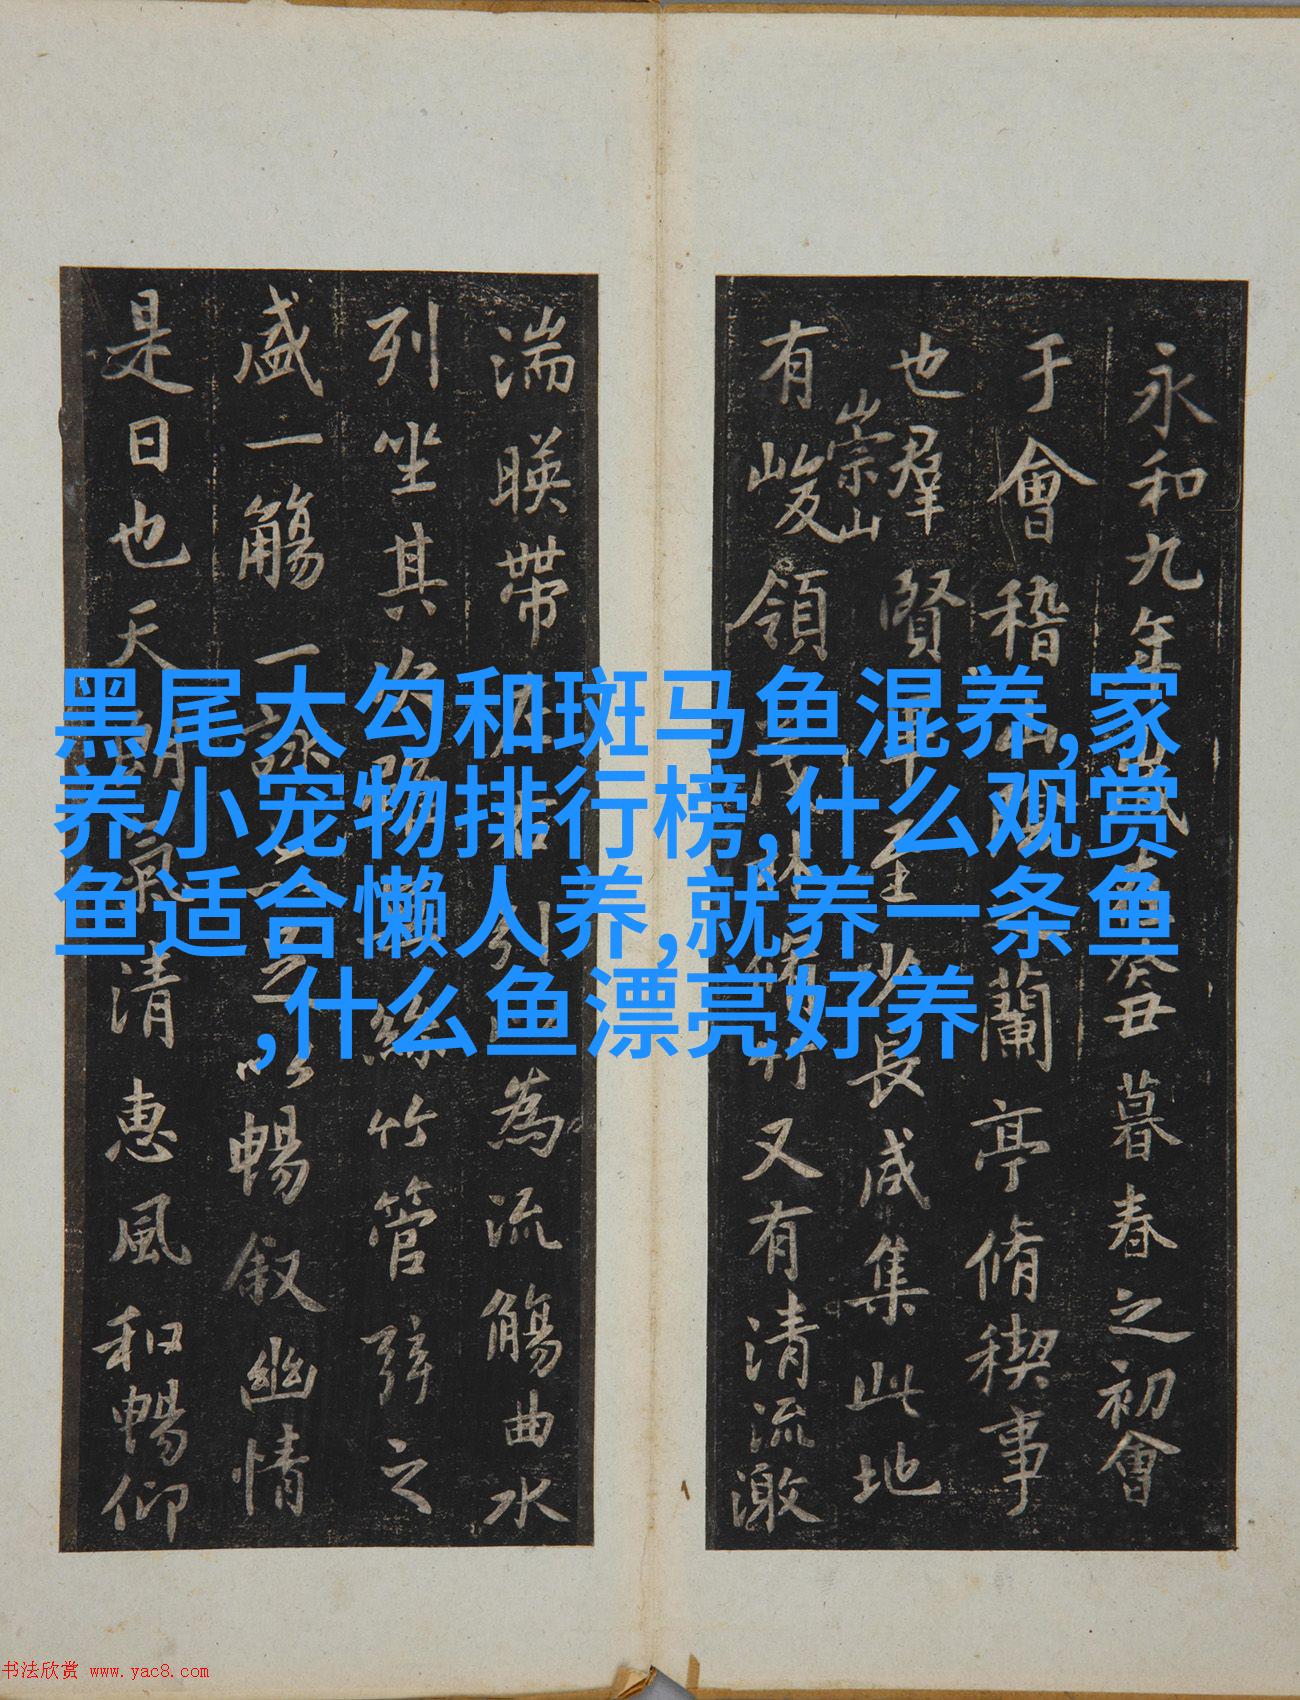 永和九年歲在癸丑暮春之初會
于會稽山陰之蘭亭脩稧事
也羣賢畢至少長咸集此地
有崇山峻領茂林脩竹又有清流激
湍暎帶左右引以為流觴曲水
列坐其次雖無絲竹管弦之
盛一觴一詠亦足以暢叙幽情
是日也天朗氣清惠風和暢仰
黑尾大勾和斑马鱼混养,家
养小宠物排行榜,什么观赏
鱼适合懒人养,就养一条鱼
,什么鱼漂亮好养
书法欣赏 www.yac8.com